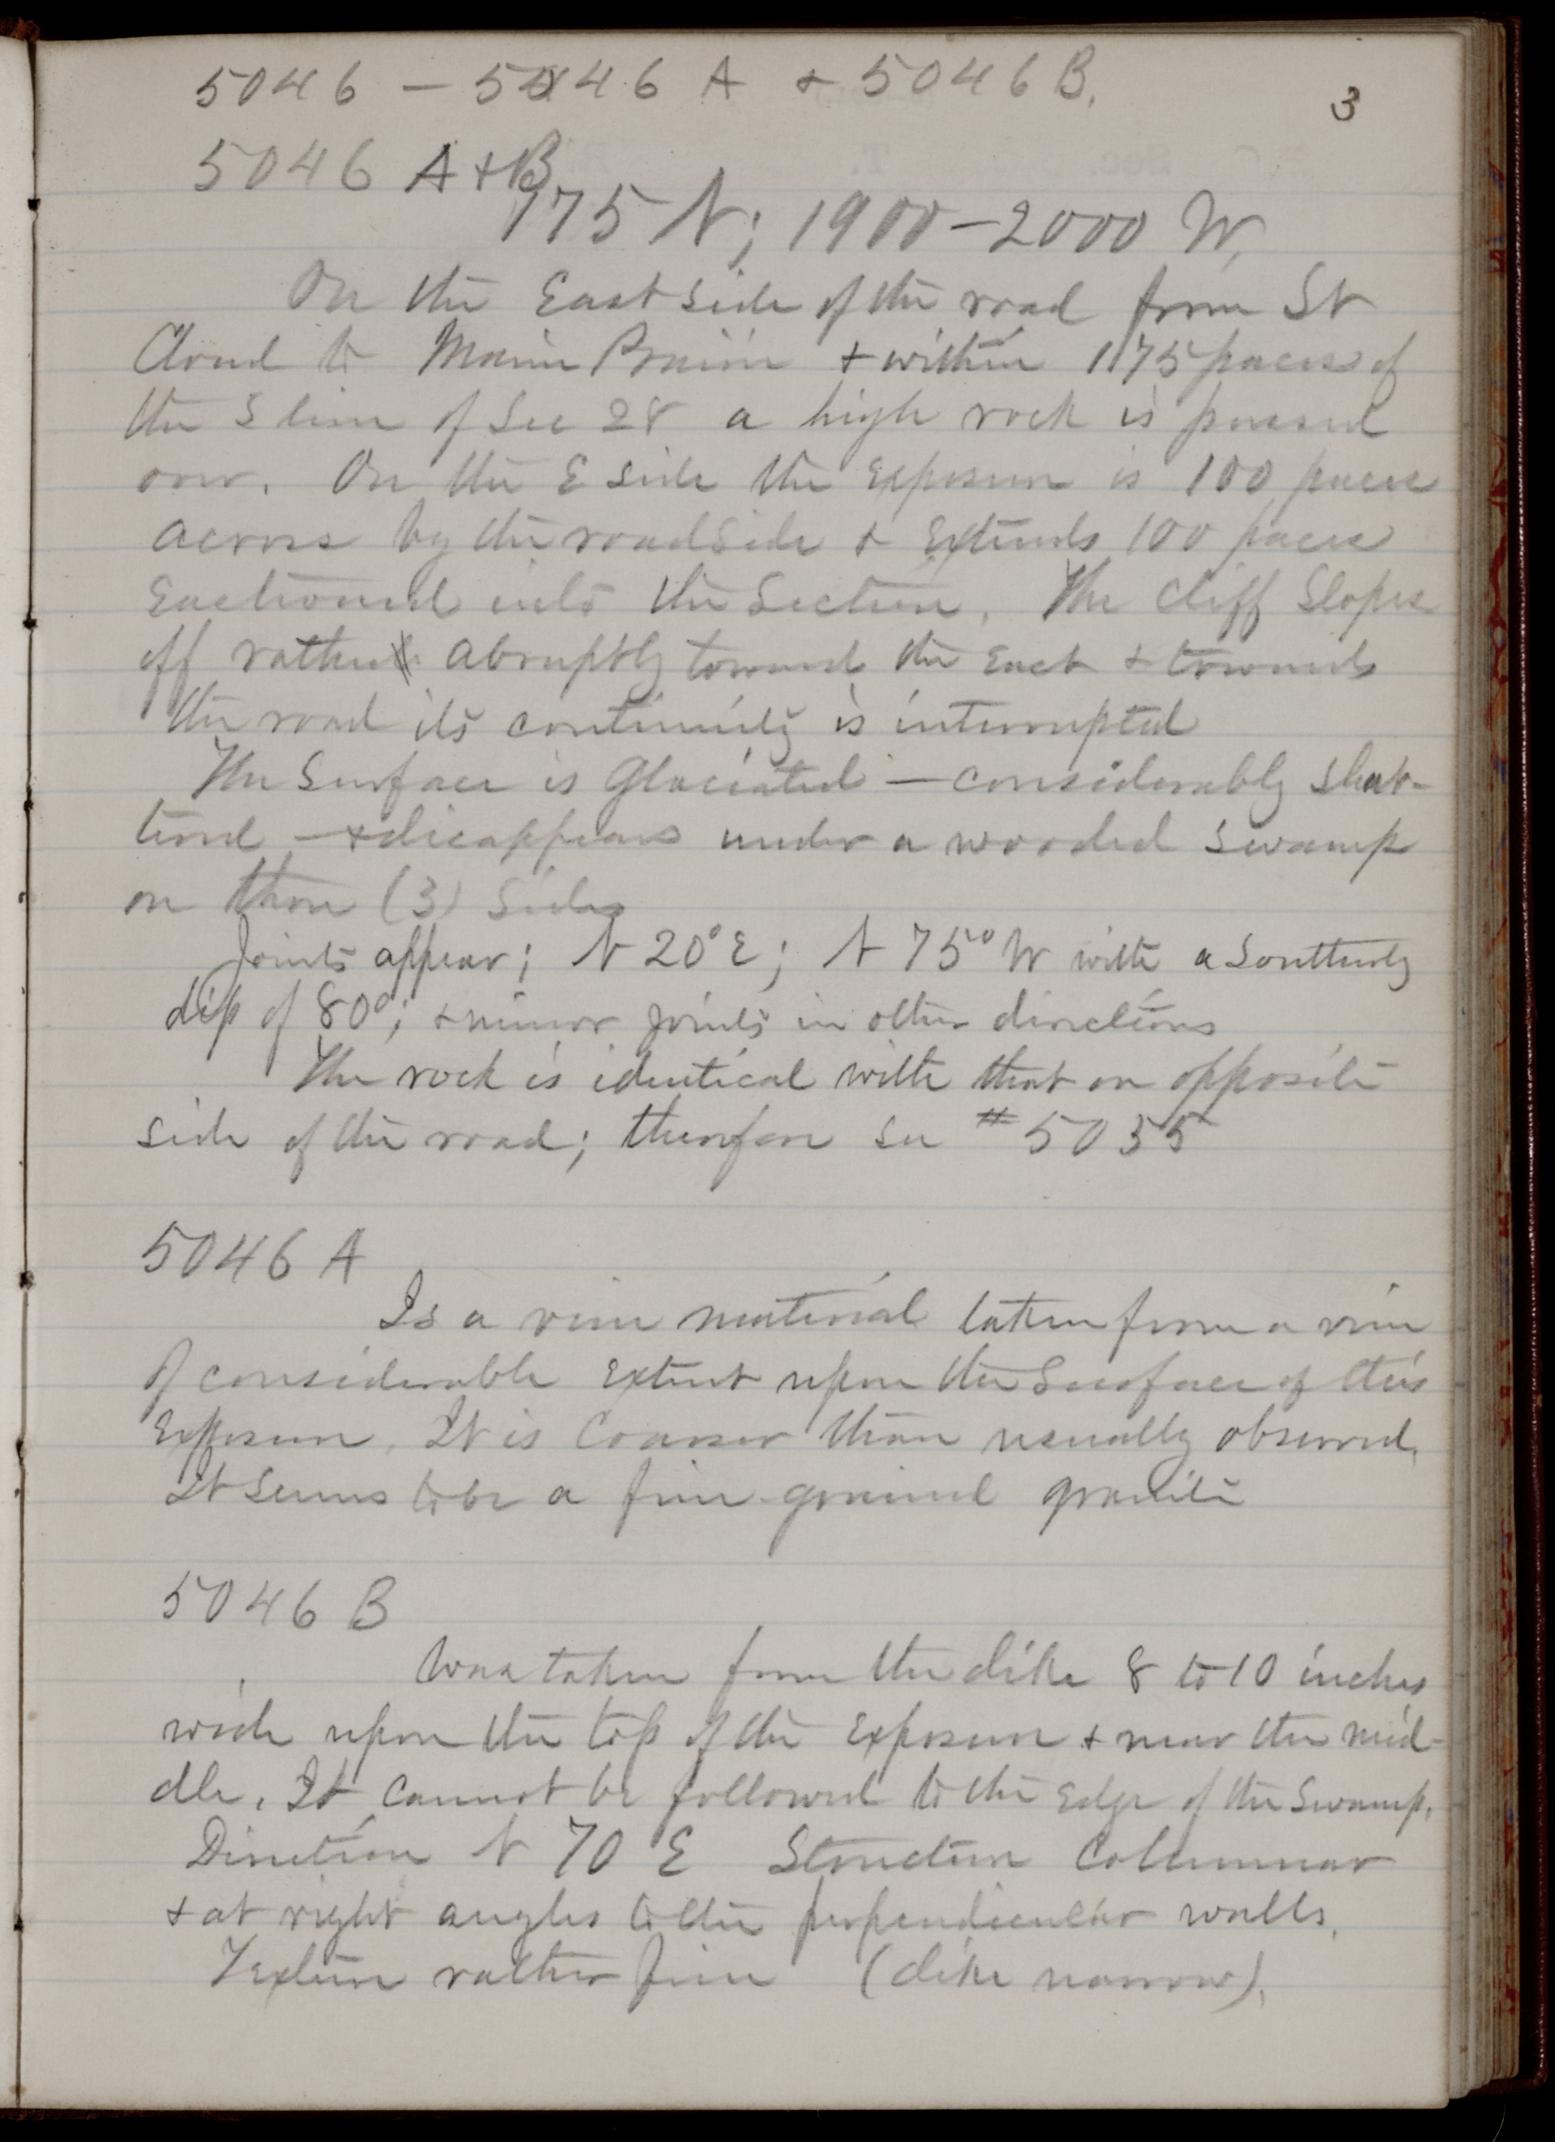 5046 - 5046 A + 5046 B.
3
5046 A + B
175 N; 1900-2000 W.
On the East side of the road from St
Cloud to Maine Prairie + within 175 paces of
the S line of Sec 28 a high rock is passed
over. On the E side the exposure is 100 paces
across by the roadside + extends 100 paces
Eastward into the Section. The cliff slopes
off rather abruptly toward the East + towards
the road its continuity is interrupted
The Surface is Glaciated - considerably shat-
tered - + disappears under a wooded swamp
on three (3) sides
Joints appear; N 20° E; N 75° W with a Southerly
dip of 80°; + minor joints in other directions
The rock is identical with that on opposite
side of the road; therefore see #5035
5046 A
Is a vein material taken from a vein
of considerable extent upon the Surface of this
Exposure. It is Coarser than usually observed.
It seems to be a fine-grained granite
5046 B
Was taken from the dike 8 to 10 inches
wide upon the top of the Exposure + near the mid-
dle. It cannot be followed to the edge of the Swamp.
Direction N 70 E Structure Columnar
+ at right angles to the perpendicular walls.
Texture rather fine (dike narrow).